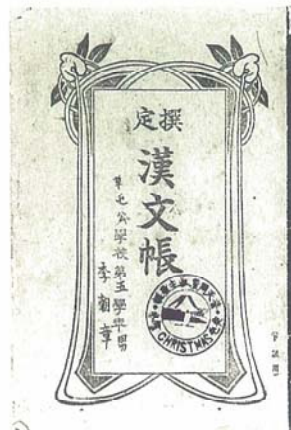 撰定
漢文帳
草屯公學校第五學年男
李朝章
CHRISTMAS